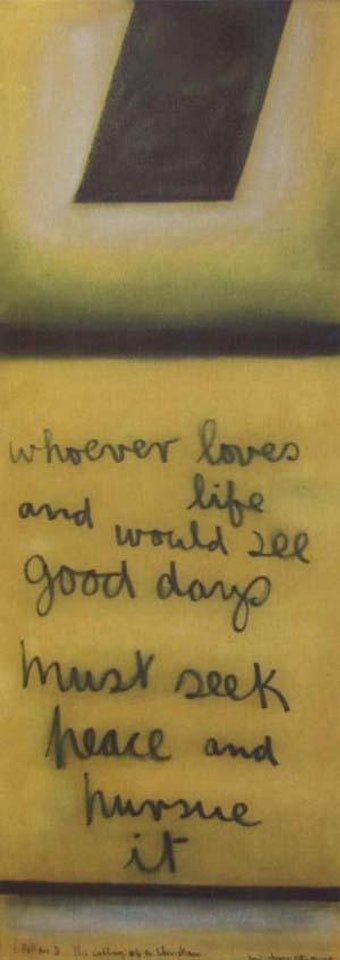 whoever loves
life
and would see
good days
must seek
peace and
pursue
it
The calling of a Christian